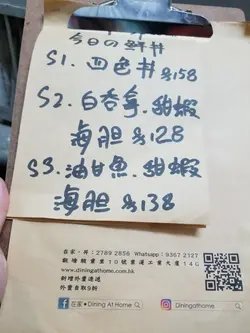 今日の鮮丼
S1. 四色丼 $158
S2. 白吞拿.甜蝦
海胆 $128
S3. 油甘魚.甜蝦
海胆 $138
在家‧丼：2789 2856 Whatsapp：9367 2127
觀塘駿業里10號業運工業大廈14G
www.diningathome.com.hk
新增外賣速遞
外賣自取9折
在家•Dining At Home
Diningathome